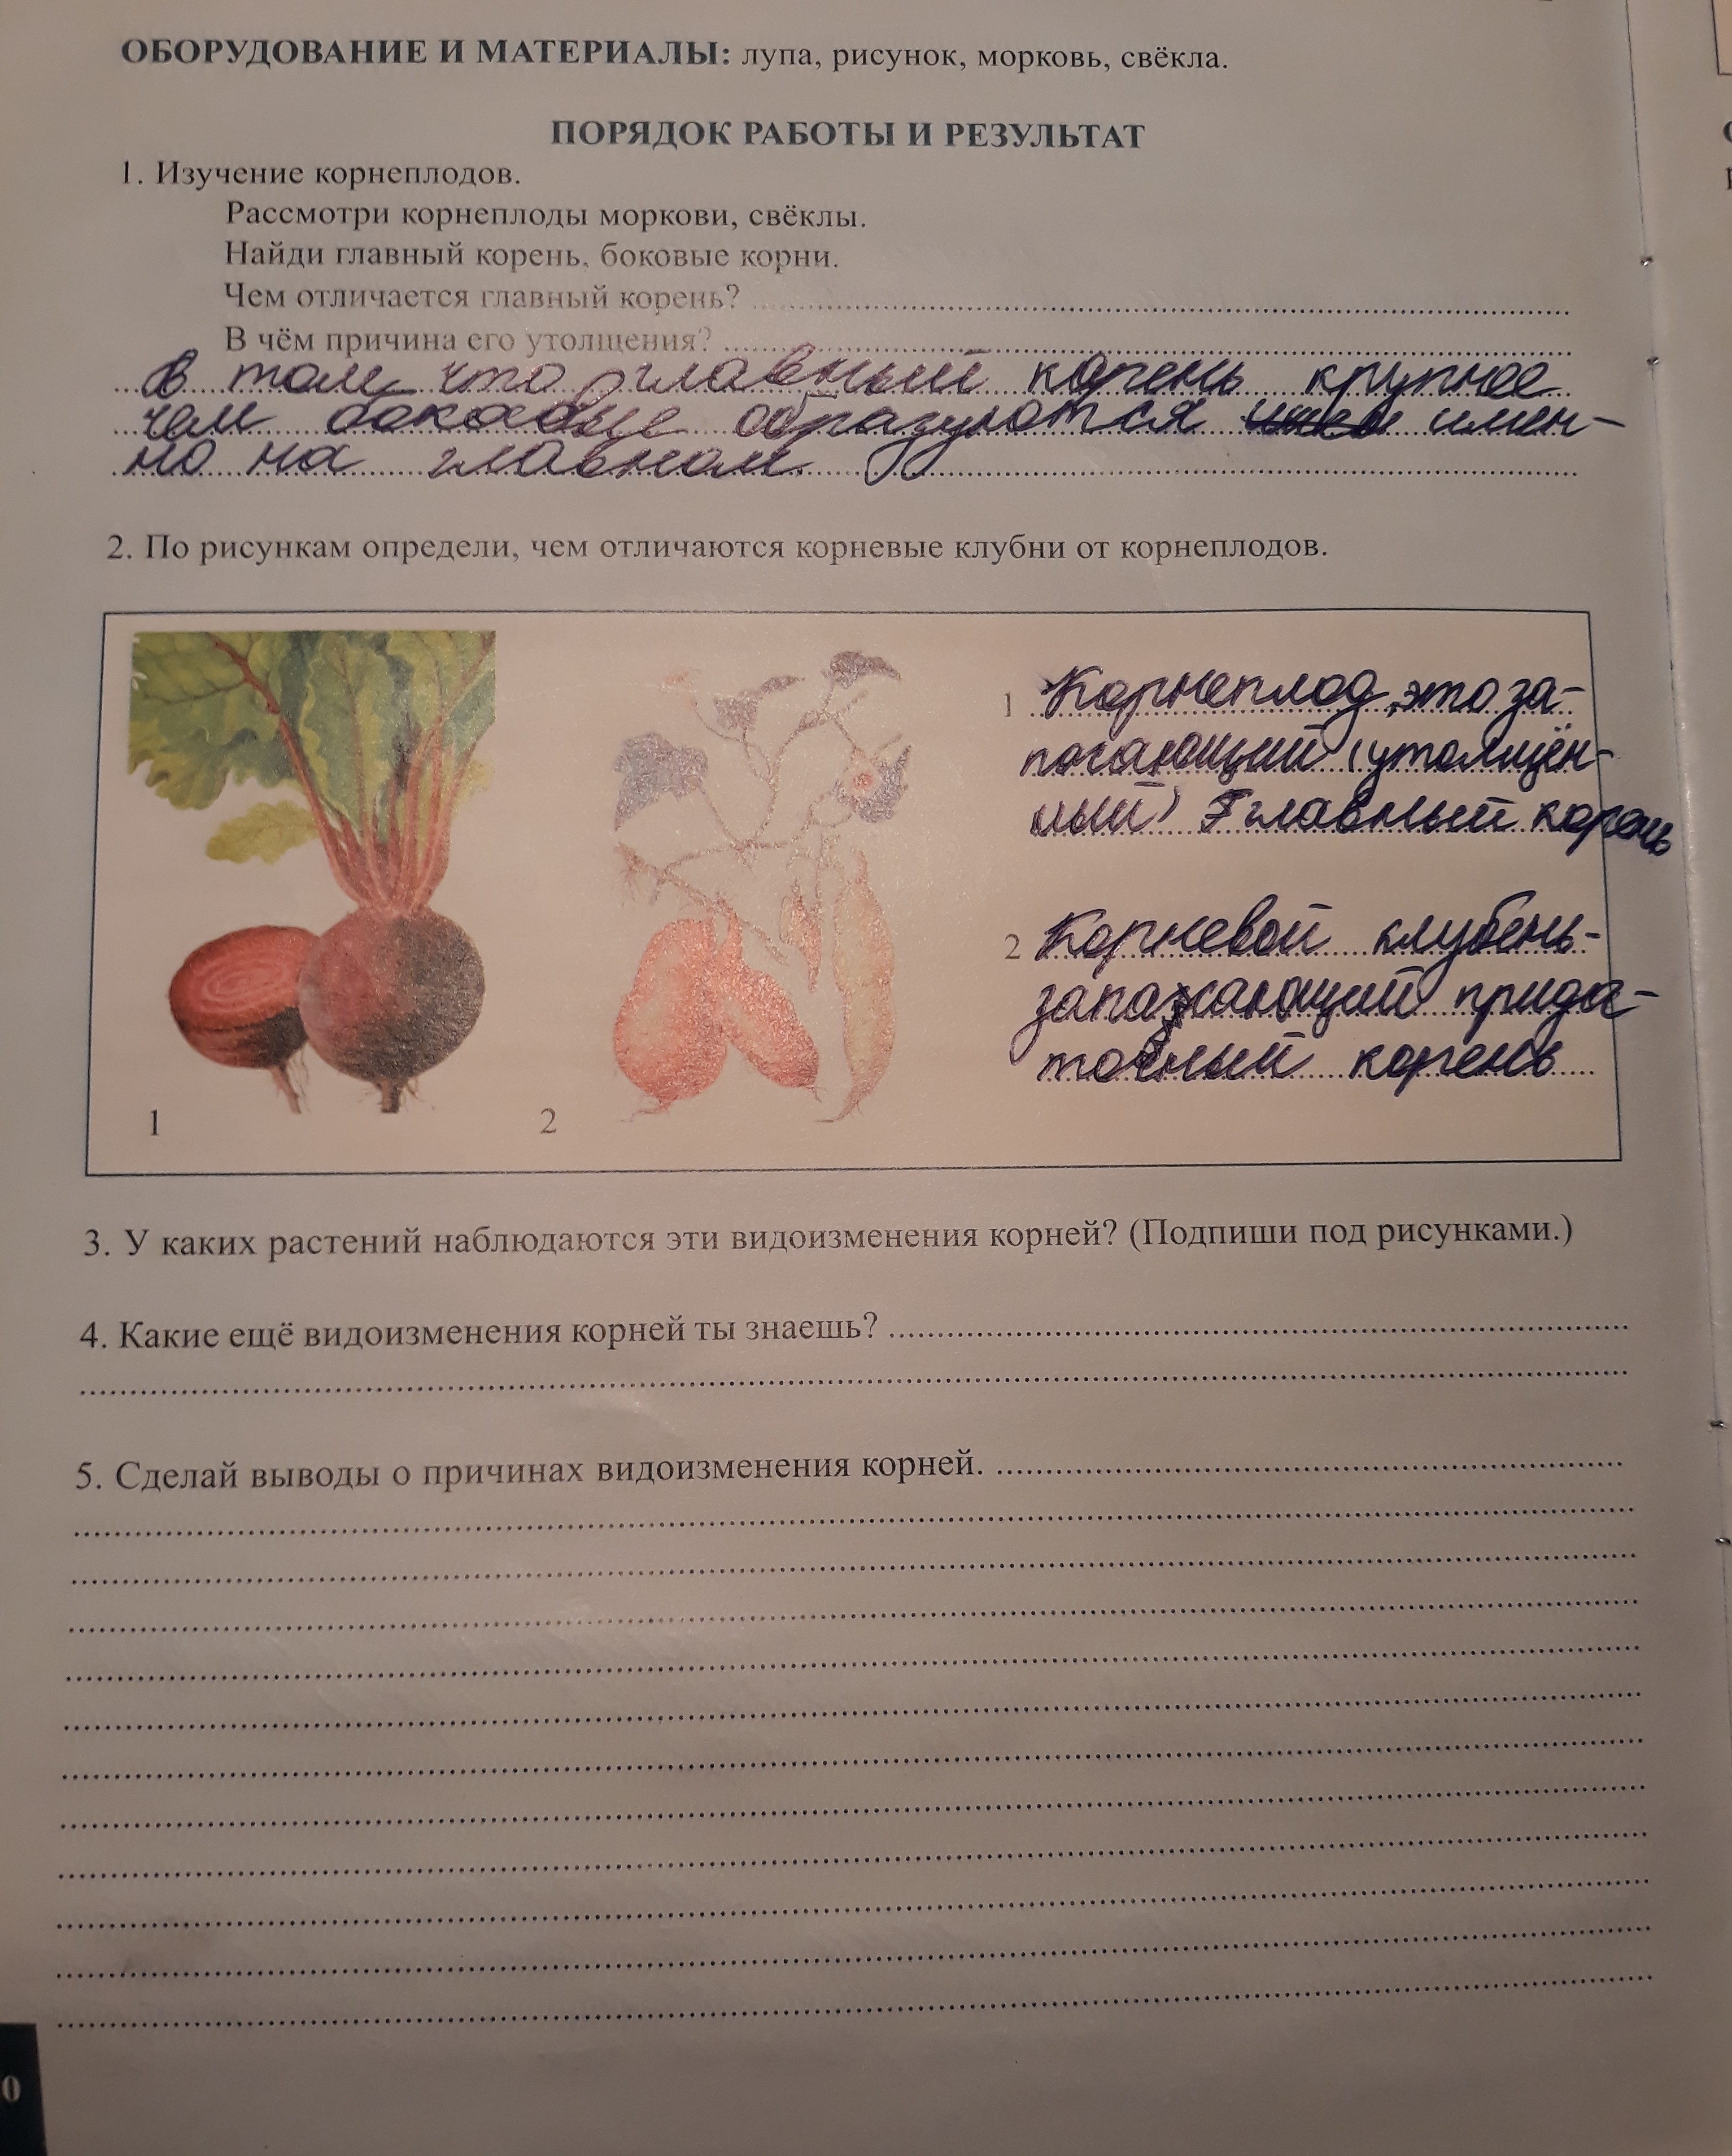 ОБОРУДОВАНИЕ И МАТЕРИАЛЫ: лупа, рисунок, морковь, свёкла.
ПОРЯДОК РАБОТЫ И РЕЗУЛЬТАТ
1. Изучение корнеплодов.
Рассмотри корнеплоды моркови, свёклы.
Найди главный корень, боковые корни.
Чем отличается главный корень?
В чём причина его утолщения?
В том что главный корень крупнее
чем боковые образуются имен-
но на главном.
2. По рисункам определи, чем отличаются корневые клубни от корнеплодов.
1 Корнеплод, это за-
посающий (утолщён-
ный) главный корень
2 Корневой клубень-
запасающий прида-
точный корень
1
2
3. У каких растений наблюдаются эти видоизменения корней? (Подпиши под рисунками.)
4. Какие ещё видоизменения корней ты знаешь?
5. Сделай выводы о причинах видоизменения корней.
0